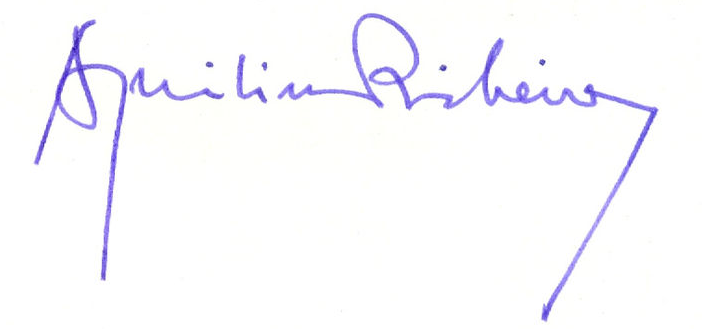 Aquilino Ribeiro